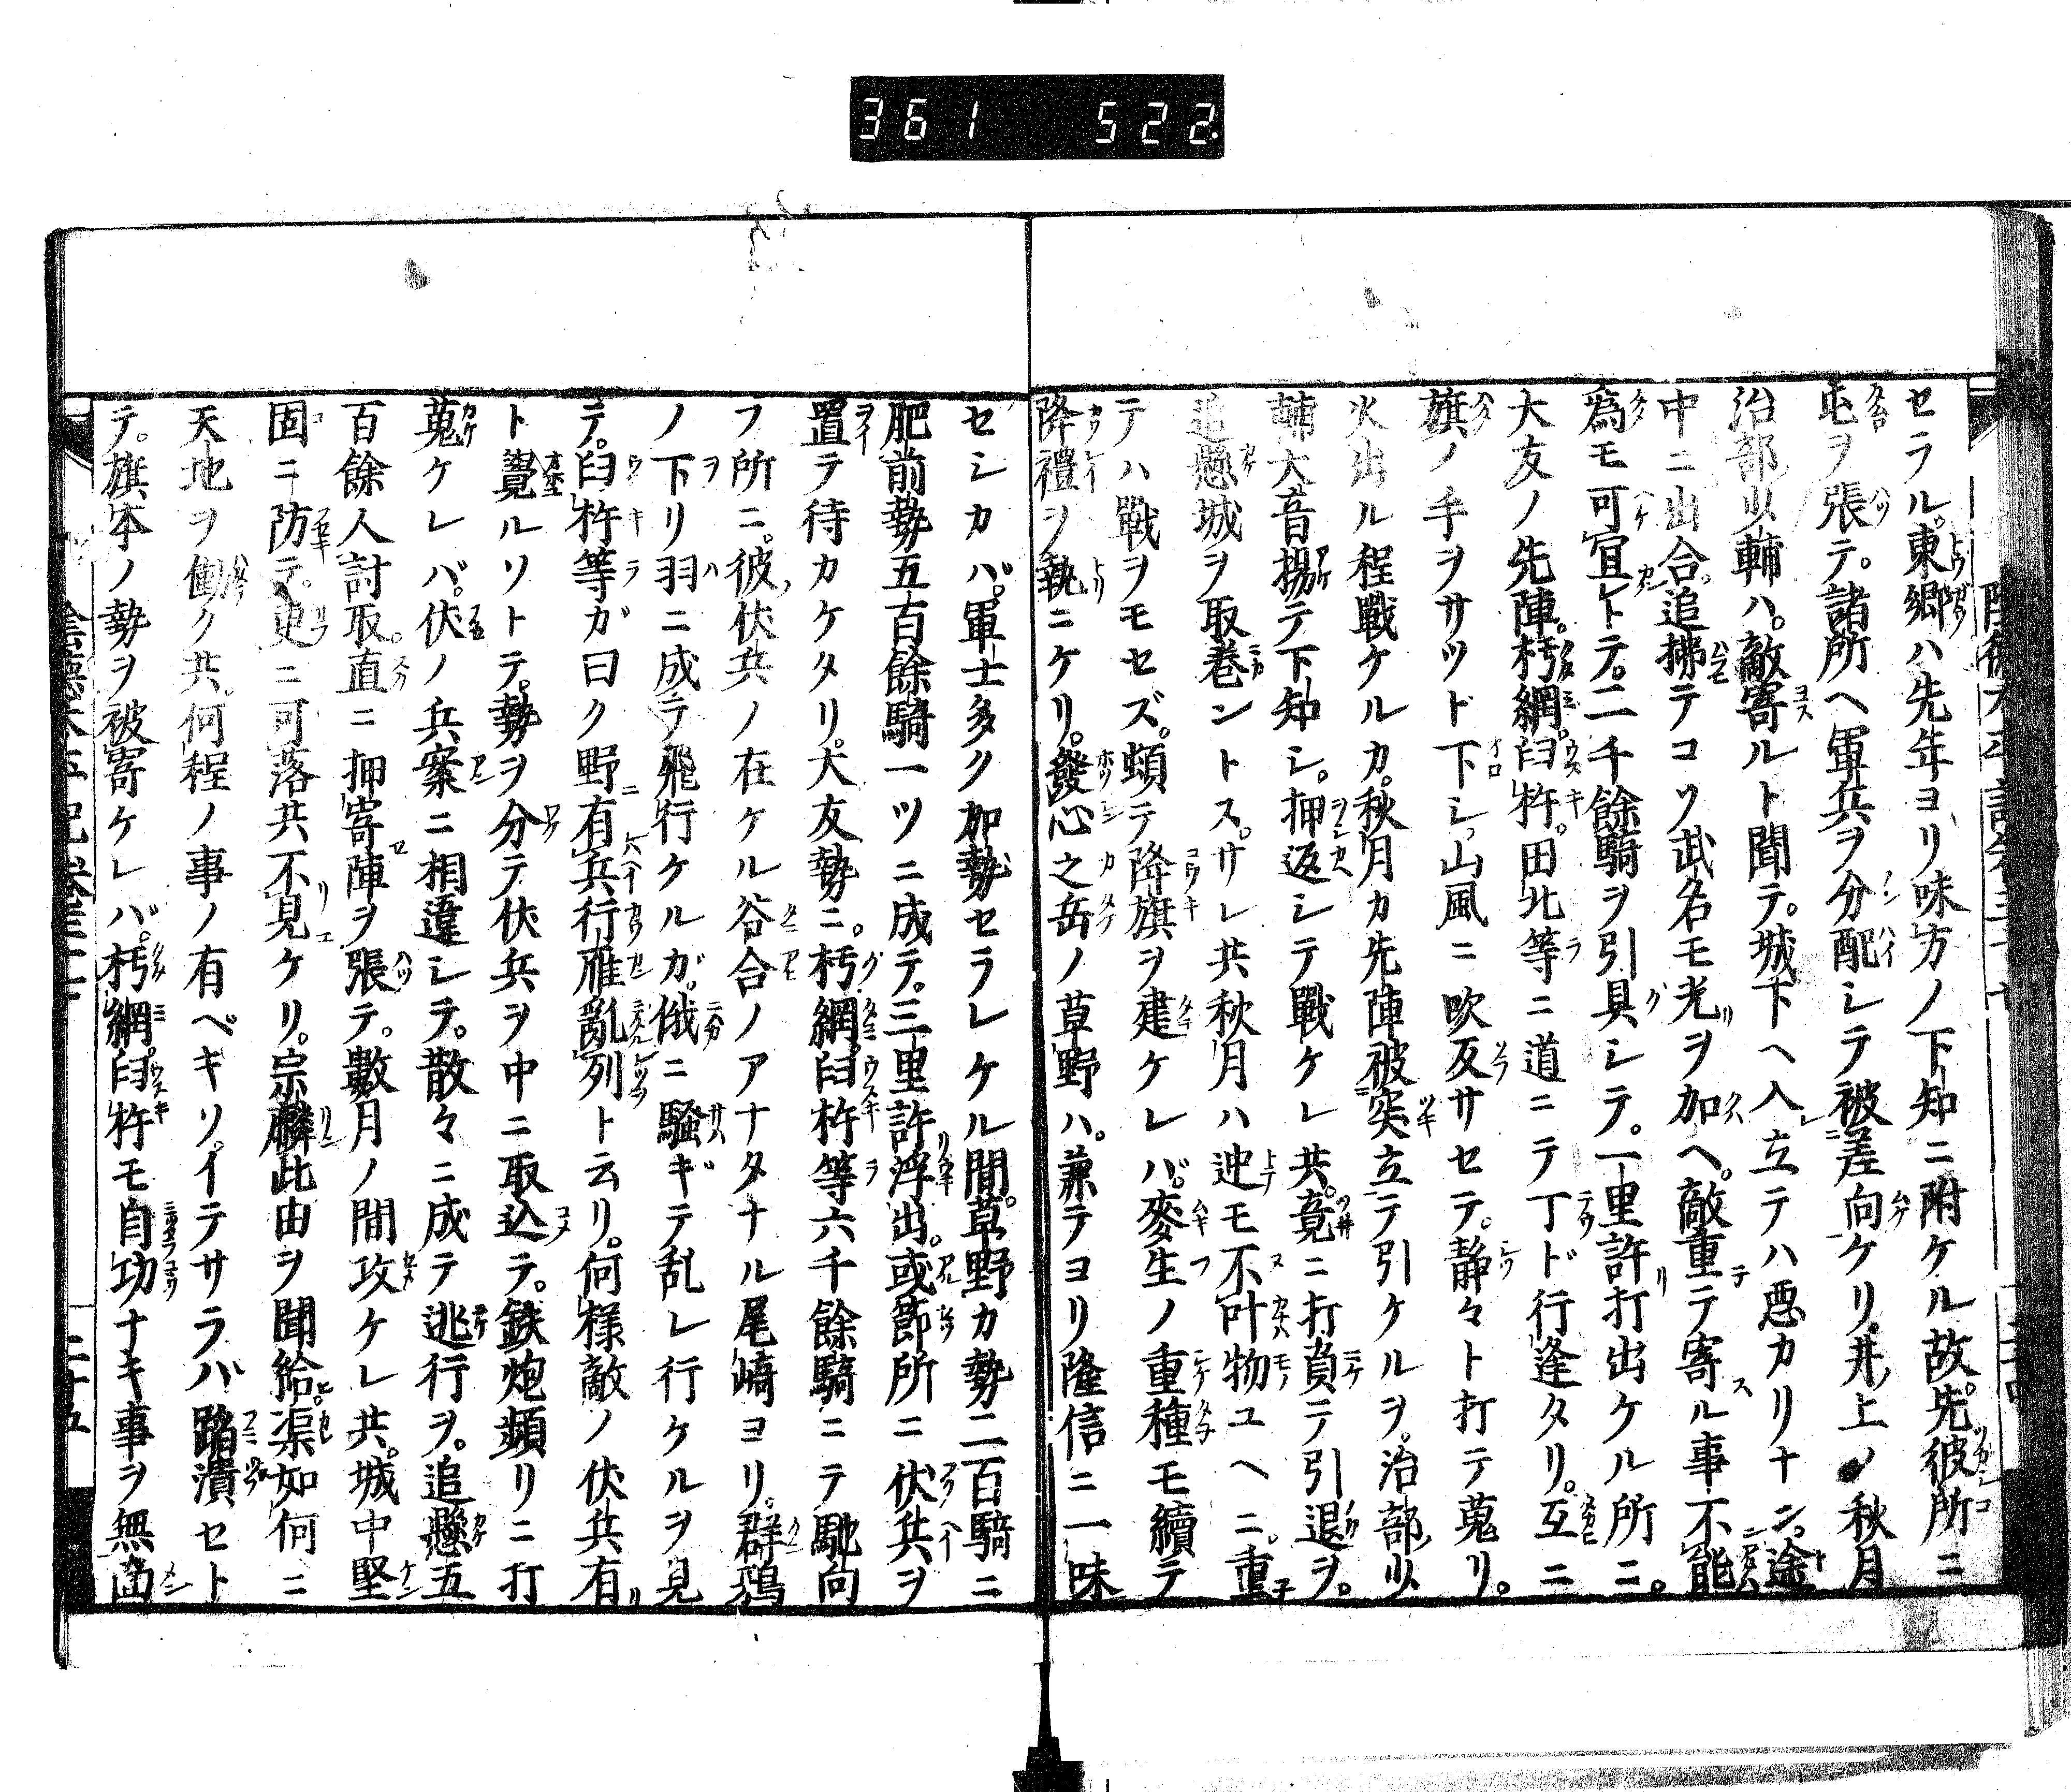 361 522.
セラル。東郷ハ先年ヨリ味方ノ下知ニ附ケル故。先彼所ニ
屯ヲ張テ。諸所ヘ軍兵ヲ分配シテ被差向ケリ。井上ノ秋月
治部少輔ハ。敵寄ルト聞テ。城下ヘ入立テハ悪カリナン。途
中ニ出合追拂テコソ武名モ光ヲ加ヘ。敵重テ寄ル事不能
為モ可宜トテ。二千餘騎ヲ引具シテ。一里許打出ケル所ニ。
大友ノ先陣。朽網。臼杵。田北等ニ道ニテ丁ド行逢タリ。互ニ
旗ノ手ヲサツト下シ。山風ニ吹反サセテ。静々ト打テ蒐リ。
火出ル程戰ケルカ。秋月カ先陣被突立テ引ケルヲ。治部少
輔大音揚テ下知シ。押返シテ戰ケレ共。竟ニ打負テ引退ヲ。
追懸城ヲ取巻ントス。サレ共秋月ハ迚モ不叶物ユヘニ。重
テハ戰ヲモセズ。頓テ降旗ヲ建ケレバ。麥生ノ重種モ續テ
降禮ヲ執ニケリ。發心之岳ノ草野ハ。兼テヨリ隆信ニ一味
セシカバ。軍士多ク加勢セラレケル間。草野カ勢二百騎ニ
肥前勢五百餘騎一ツニ成テ。三里許浮出。或節所ニ伏兵ヲ
置テ待カケタリ。大友勢ニ。朽網。臼杵等六千餘騎ニテ馳向
フ所ニ。彼伏兵ノ在ケル谷合ノアナタナル尾崎ヨリ。群鴉
ノ下リ羽ニ成テ飛行ケルガ。俄ニ騒ギテ乱レ行ケルヲ見
テ。臼杵等ガ曰ク野有兵行雁亂列ト云リ。何様敵ノ伏兵有
ト覺ルソトテ。勢ヲ分テ伏兵ヲ中ニ取込テ。鉄炮頻リニ打
蒐ケレバ。伏ノ兵案ニ相違シテ。散々ニ成テ逃行ヲ。追懸五
百餘人討取。直ニ押寄陣ヲ張テ。數月ノ間攻ケレ共。城中堅
固ニ防テ。更ニ可落共不見ケリ。宗麟此由ヲ聞給ヒ。渠如何ニ
天地ヲ働ク共。何程ノ事ノ有ベキソ。イテサラバ蹈潰セト
テ。旗本ノ勢ヲ被寄ケレバ。朽網。臼杵モ自功ナキ事ヲ無面